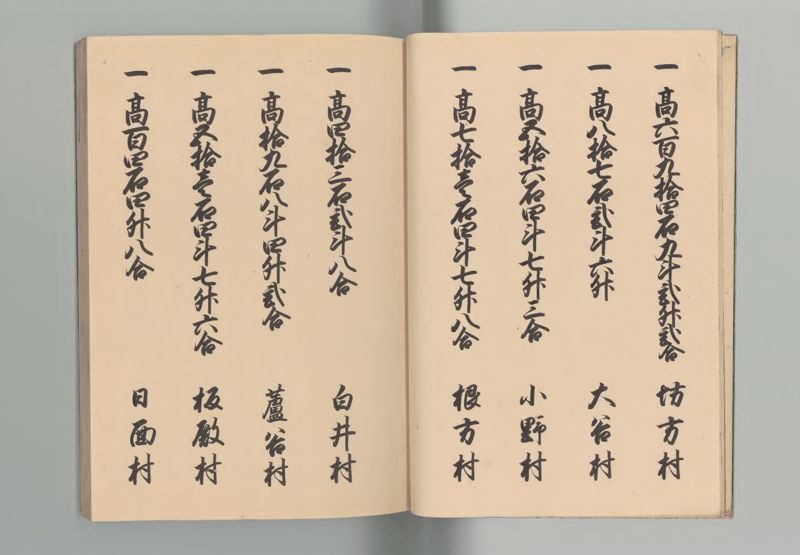 一 高六百九拾四石九斗弐升弐合 坊方村
一 高八拾七石弐斗六升 大谷村
一 高五拾六石四斗七升三合 小野村
一 高七拾壱石四斗七升八合 根方村
一 高四拾三石弐斗八合 白井村
一 高拾九石八斗四升弐合 蘆谷村
一 高五拾壱石四斗七升六合 板殿村
一 高百四石四升八合 日面村